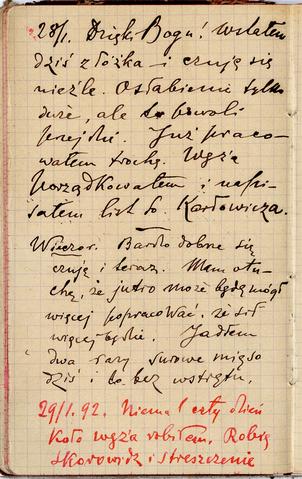 28/I. Dzięk. Bogu! wstałem
dziś z łóżka i czuję się
nieźle. Osłabienie tylko
duże, ale to powoli
przejdzi. Już praco-
wałem trochę. Węża
porządkowałem i napi-
sałem list do Karłowicza.
Wieczór. Bardzo dobrze się
czuję i teraz. Mam otu-
chę, że jutro może będę mógł
więcej popracować. że sił
więcej będzie. Jadłem
dwa razy surowe mięso
dziś i to bez wstrętu.
29/I. 92. Niemal cały dzień
koło węża robiłem. Robię
skorowidz i streszczenie